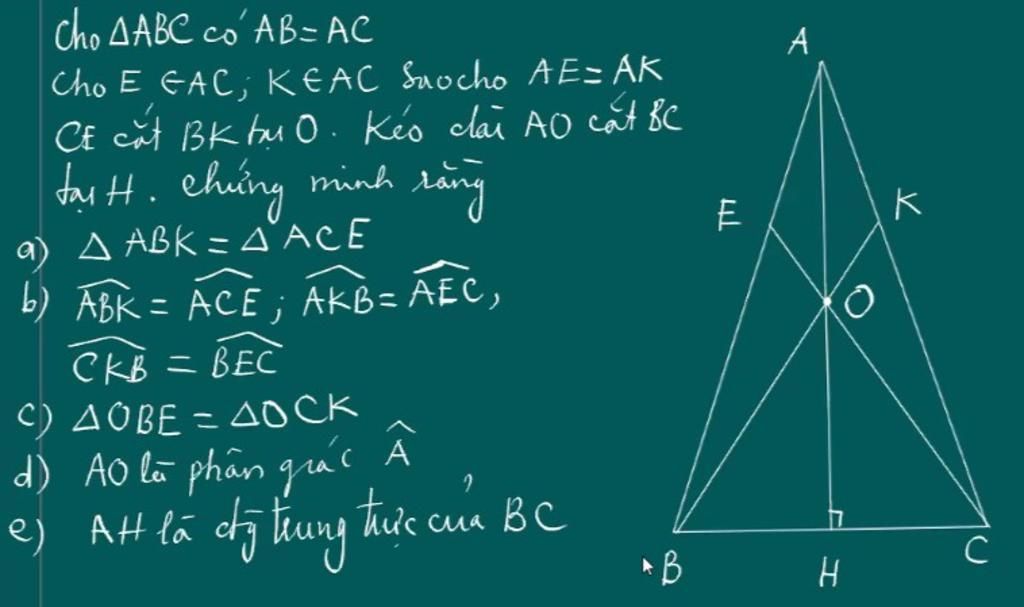 Cho ΔABC có AB = AC
Cho E ∈ AC; K ∈ AC sao cho AE = AK
CE cắt BK tại O. Kéo dài AO cắt BC
tại H. Chứng minh rằng
a) Δ ABK = Δ ACE
b) \widehat{ABK} = \widehat{ACE}; \widehat{AKB} = \widehat{AEC},
\widehat{CKB} = \widehat{BEC}
c) ΔOBE = ΔOCK
d) AO là phân giác Â
e) AH là đg trung trực của BC
A
E
K
O
B
H
C